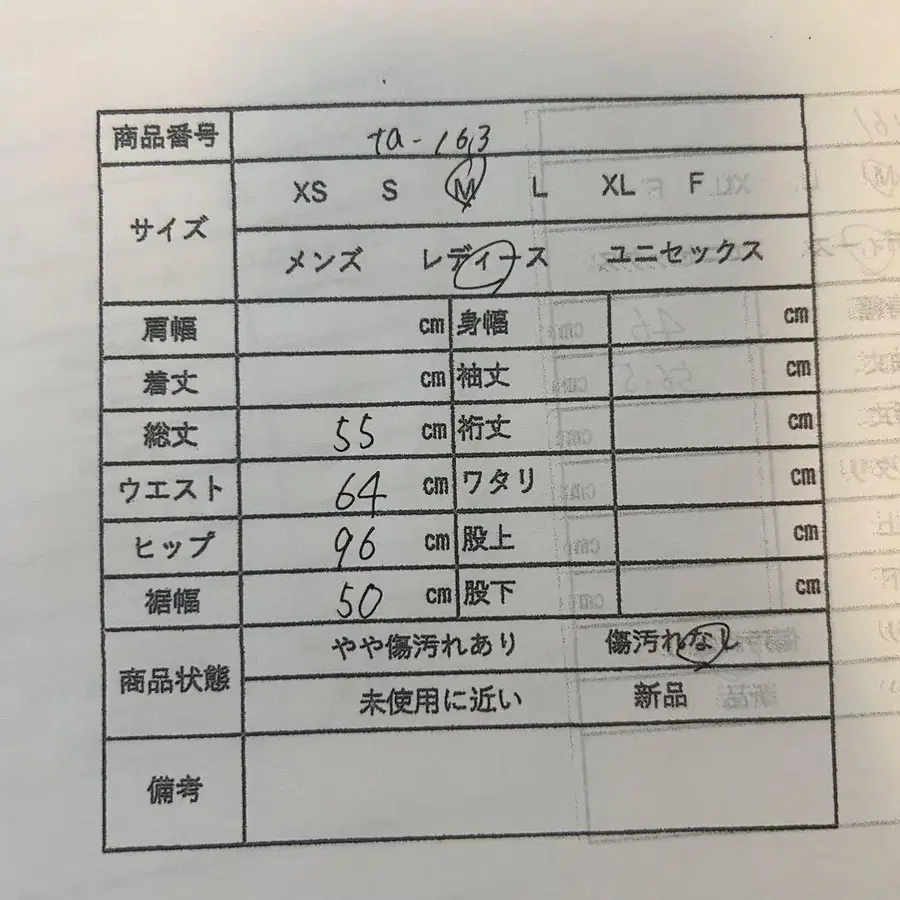 商品番号 ta-163
サイズ XS S M L XL F
メンズ レディース ユニセックス
肩幅 cm 身幅 cm
着丈 cm 袖丈 cm
総丈 55 cm 裄丈 cm
ウエスト 64 cm ワタリ cm
ヒップ 96 cm 股上 cm
裾幅 50 cm 股下 cm
商品状態 やや傷汚れあり 傷汚れなし
未使用に近い 新品
備考